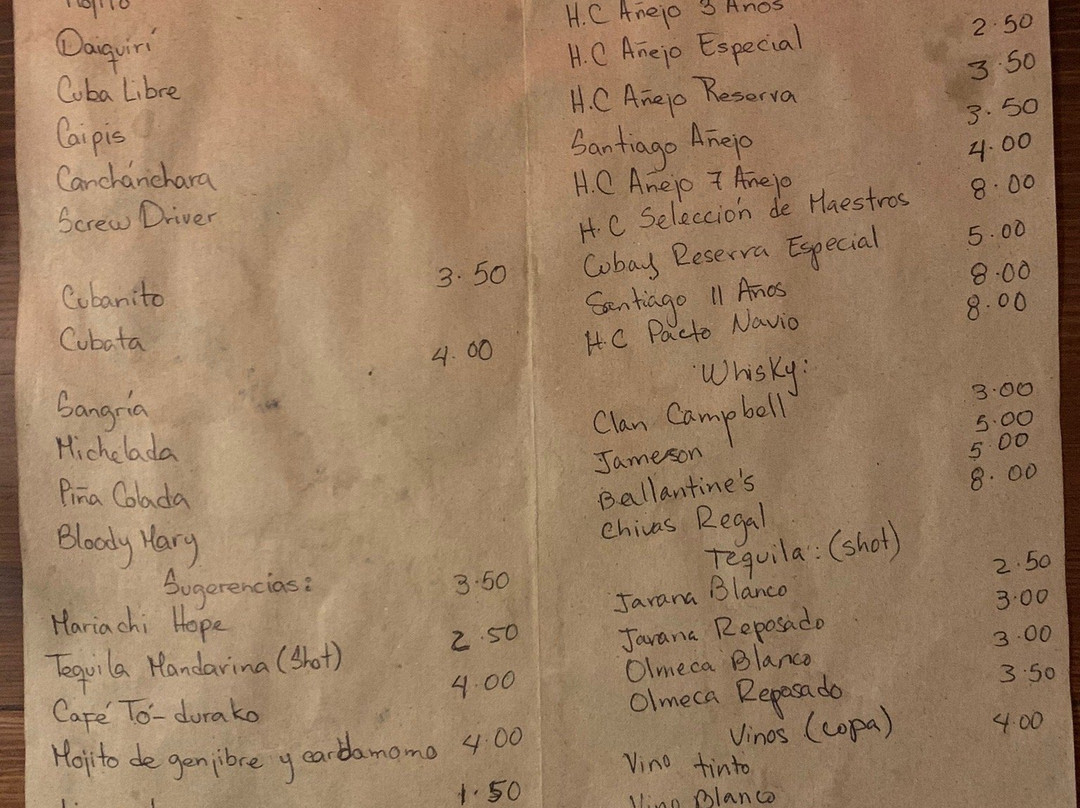 Mojito
Daiquirí
Cuba Libre
Caipis
Canchánchara
Screw Driver
Cubanito 3.50
Cubata 4.00
Sangría
Michelada
Piña Colada
Bloody Mary
Sugerencias:
Mariachi Hope 3.50
Tequila Mandarina (Shot) 2.50
Café Tó-durako 4.00
Mojito de genjibre y cardamomo 4.00
1.50
H.C Añejo 3 Años
H.C Añejo Especial 2.50
H.C Añejo Reserva 3.50
Santiago Añejo 3.50
H.C Añejo 7 Añejo 4.00
H.C Selección de Maestros 8.00
Cubay Reserva Especial 5.00
Santiago 11 Años 8.00
H.C Pacto Navio 8.00
Whisky:
Clan Campbell 3.00
Jameson 5.00
Ballantine's 5.00
Chivas Regal 8.00
Tequila: (shot)
Jarana Blanco 2.50
Jarana Reposado 3.00
Olmeca Blanco 3.00
Olmeca Reposado 3.50
Vinos (copa)
Vino tinto 4.00
Vino Blanco